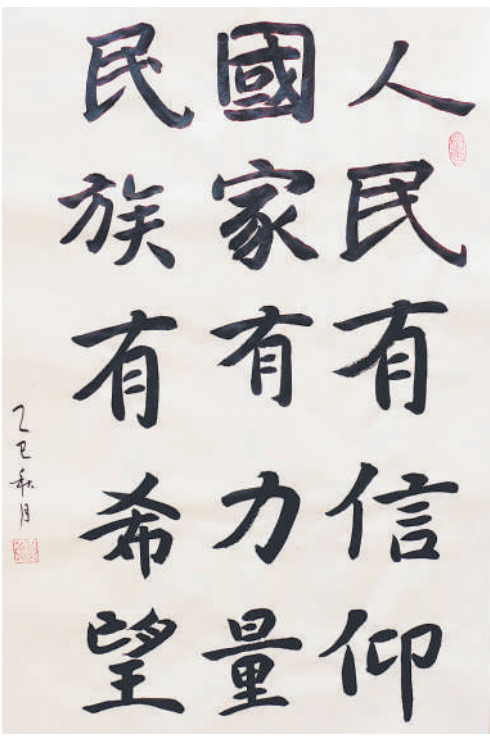 人民有信仰
國家有力量
民族有希望
乙巳秋月